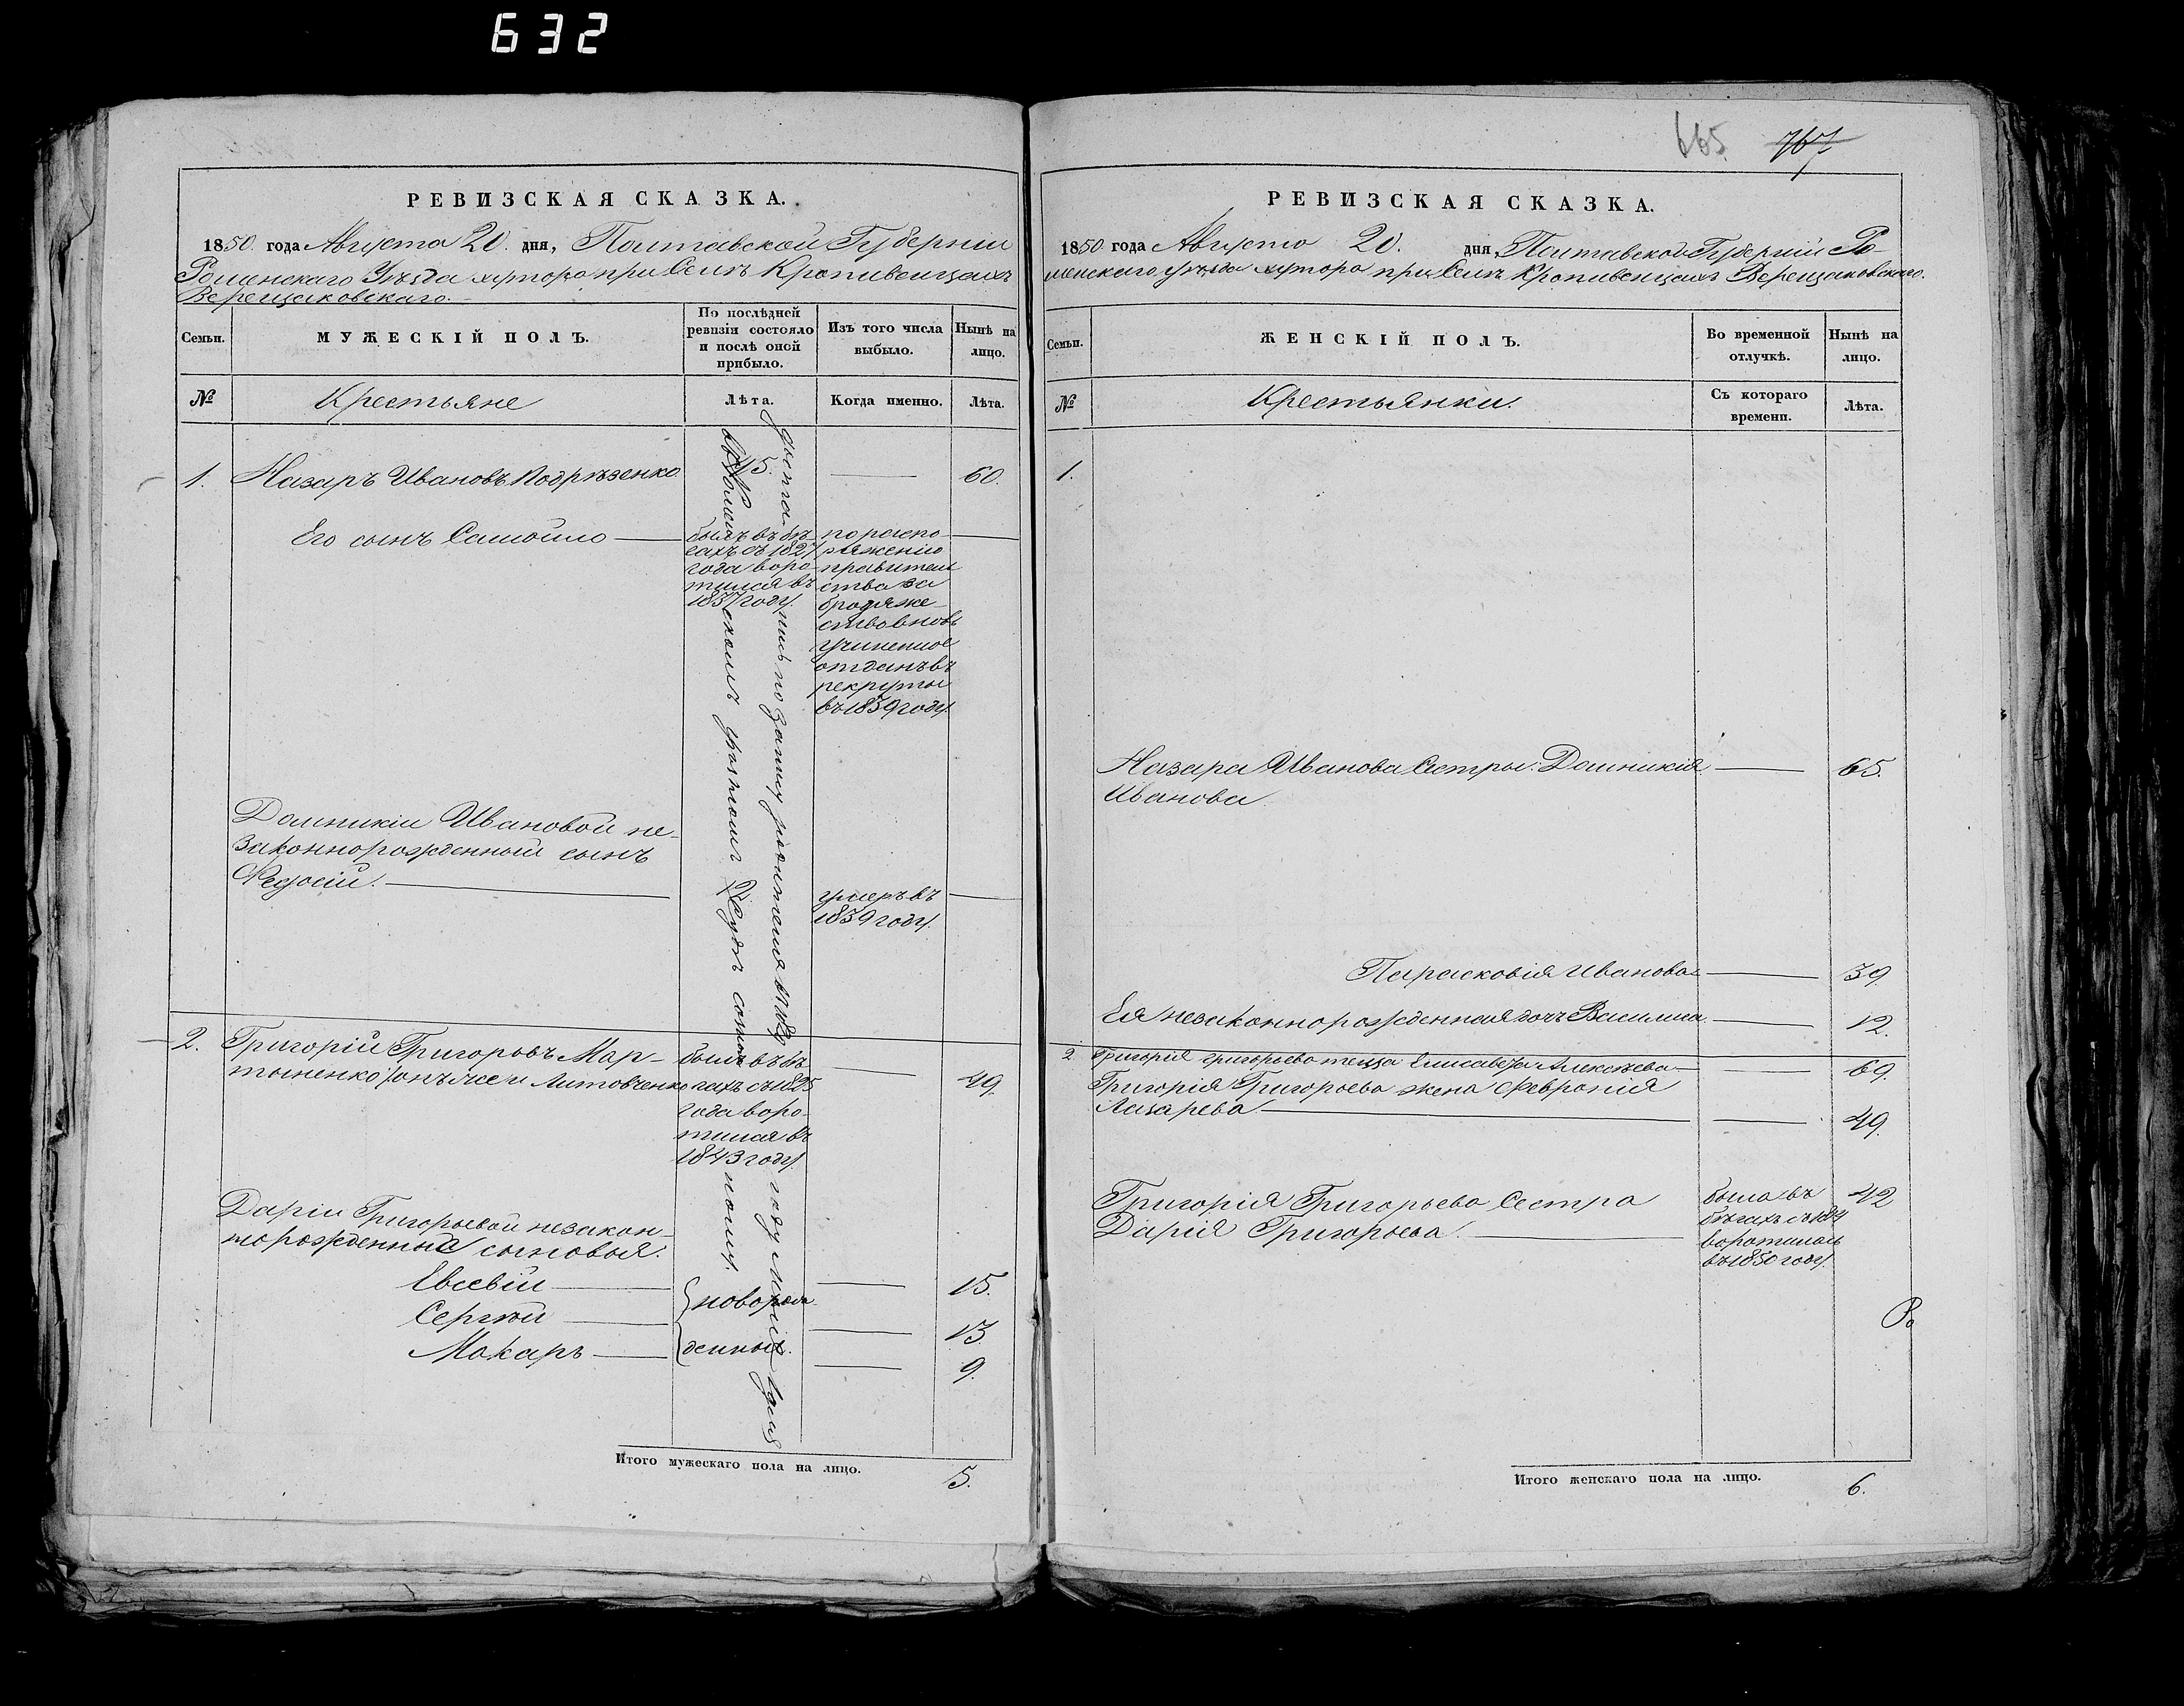 632
РЕВИЗСКАЯ СКАЗКА.
1850 года Августа 20. дня, Полтавской Губерніи
Роменскаго Уѣзда хутора при Селѣ Кропивенцахъ
Верещаковскаго.
Семьи.
МУЖЕСКІЙ ПОЛЪ.
По послѣдней
ревизіи состояло
и послѣ оной
прибыло.
Изъ того числа
выбыло.
Нынѣ на
лицо.
№
Крестьяне
Лѣта.
Когда именно.
Лѣта.
1. Назаръ Ивановъ Подрѣзенко 45. 60.
Его сынъ Самойло
былъ въ бѣ-
гахъ съ 1827
года воро-
тился въ
1837 году.
по распо-
ряженію
правитель
ства за
бродяже-
ство вновь
учиненное
отданъ въ
рекруты
въ 1839 году.
Домникіи Ивановой не-
законнорожденный сынъ
Федосій.
умеръ въ
1839 году.
2. Григорій Григорьевъ Мар-
тыненко онъ же и Литовченко
былъ въ бѣ-
гахъ съ 1825
года воро-
тился въ
1843 году.
49.
Даріи Григорьевой незакон-
норожденные сыновья:
Евсевій 15.
Сергѣй 13
Макаръ 9.
новорож-
денные.
по запису
году
Итого мужескаго пола на лицо. 5.
665. 767
РЕВИЗСКАЯ СКАЗКА.
1850 года Августа 20. дня, Полтавской Губерніи Ро-
менскаго уѣзда хутора при Селѣ Кропивенцахъ Верещаковскаго.
Семьи.
ЖЕНСКІЙ ПОЛЪ.
Во временной
отлучкѣ.
Нынѣ на
лицо.
№
Крестьянки.
Съ котораго
времени.
Лѣта.
1.
Назара Иванова Сестры: Домникія 65.
Иванова
Парасковія Иванова 39
Ея незаконнорожденная дочь Василиса 12.
2. Григорія Григорьева теща Елисавета Алексѣева 69.
Григорія Григорьева жена Февронія
Лазарева 49.
Григорія Григорьева Сестра
Дарія Григорьева.
была въ
бѣгахъ съ
воротилась
въ 1850 году.
42
Ро
Итого женскаго пола на лицо. 6.